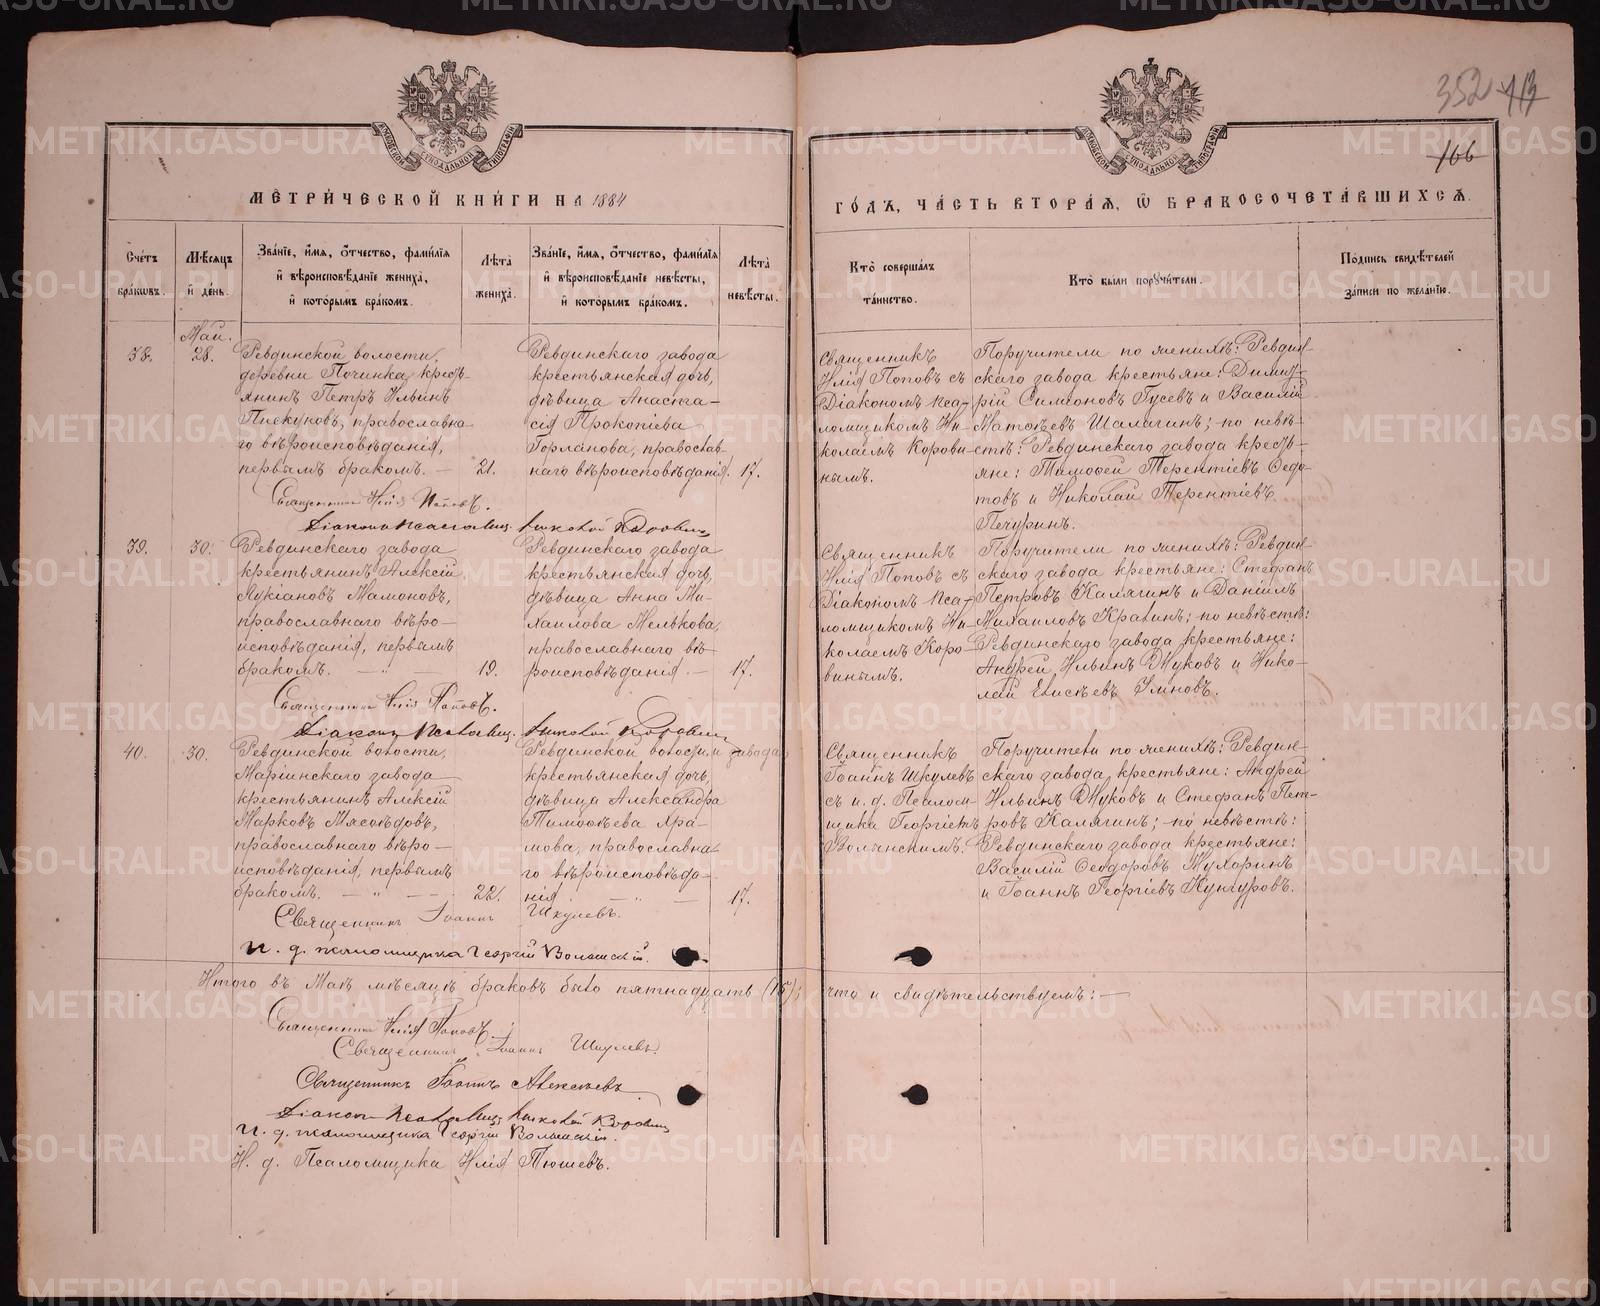 352 113
166
МЕТРИЧЕСКОЙ КНИГИ НА 1884
ГОДЪ, ЧАСТЬ ВТОРАЯ, Ѡ БРАКОСОЧЕТАВШИХСЯ.
Счетъ браковъ.
Мѣсяцъ и день.
Званіе, имя, отчество, фамилія
и вѣроисповѣданіе жениха,
и которымъ бракомъ.
Лѣта жениха.
Званіе, имя, отчество, фамилія
и вѣроисповѣданіе невѣсты,
и которымъ бракомъ.
Лѣта невѣсты.
Кто совершалъ
таинство.
Кто были поручители.
Подпись свидѣтелей
записи по желанію.
Май.
38.
28.
Ревдинской волости,
деревни Починка, кресть-
янинъ Петръ Ильинъ
Плекуновъ, православна-
го вѣроисповѣданія,
первымъ бракомъ. — 21.
Ревдинскаго завода
крестьянская дочь,
дѣвица Анаста-
сія Прокопіева
Горланова, православ-
наго вѣроисповѣданія. 17.
Священникъ
Илія Поповъ съ
Діакономъ пса-
ломщикомъ Ни-
колаемъ Корови-
нымъ.
Поручители по женихѣ: Ревдин-
скаго завода крестьяне: Димит-
рій Симеоновъ Гусевъ и Василій
Матѳеевъ Шалагинъ; по невѣ-
стѣ: Ревдинскаго завода кресть-
яне: Тимоѳей Терентіевъ Федо-
товъ и Николай Терентіевъ
Печуринъ.
Священникъ Илія Поповъ.
Діаконъ псаломщ. Николай Коровинъ
39.
30.
Ревдинскаго завода
крестьянинъ Алексій
Лукіановъ Мамоновъ,
православнаго вѣро-
исповѣданія, первымъ
бракомъ. — „ — 19.
Ревдинскаго завода
крестьянская дочь,
дѣвица Анна Ми-
хаилова Мелькова,
православнаго вѣ-
роисповѣданія. — 17.
Священникъ
Илія Поповъ съ
Діакономъ пса-
ломщикомъ Ни-
колаемъ Коро-
винымъ.
Поручители по женихѣ: Ревдин-
скаго завода крестьяне: Стефанъ
Петровъ Калягинъ и Даніилъ
Михаиловъ Кравинъ; по невѣстѣ:
Ревдинскаго завода крестьяне:
Андрей Ильинъ Жуковъ и Нико-
лай Елисѣевъ Умновъ.
Священникъ Илія Поповъ.
Діаконъ псаломщ. Николай Коровинъ
40.
30.
Ревдинской волости,
Маріинскаго завода
крестьянинъ Алексій
Марковъ Мясоѣдовъ,
православнаго вѣро-
исповѣданія, первымъ
бракомъ. — „ — — 22.
Ревдинской волости и завода
крестьянская дочь,
дѣвица Александра
Тимоѳеева Хра-
мова, православна-
го вѣроисповѣда-
нія. — „ — 17.
Священникъ
Іоаннъ Шкулевъ
съ и. д. Псалом-
щика Георгіемъ
Волынскимъ.
Поручители по женихѣ: Ревдин-
скаго завода крестьяне: Андрей
Ильинъ Жуковъ и Стефанъ Пет-
ровъ Калягинъ; по невѣстѣ:
Ревдинскаго завода крестьяне:
Василій Ѳеодоровъ Мухоринъ
и Іоаннъ Георгіевъ Кунгуровъ.
Священникъ Іоаннъ Шкулевъ.
И. д. псаломщика Георгій Волынскій.
Итого въ Маѣ мѣсяцѣ браковъ было пятнадцать (15); что и свидѣтельствуемъ: —
Священникъ Илія Поповъ.
Священникъ Іоаннъ Шкулевъ.
Священникъ Іоаннъ Алексѣевъ
Діаконъ псаломщ. Николай Коровинъ
И. д. псаломщика Георгій Волынскій.
И. д. Псаломщика Илія Тюшевъ.